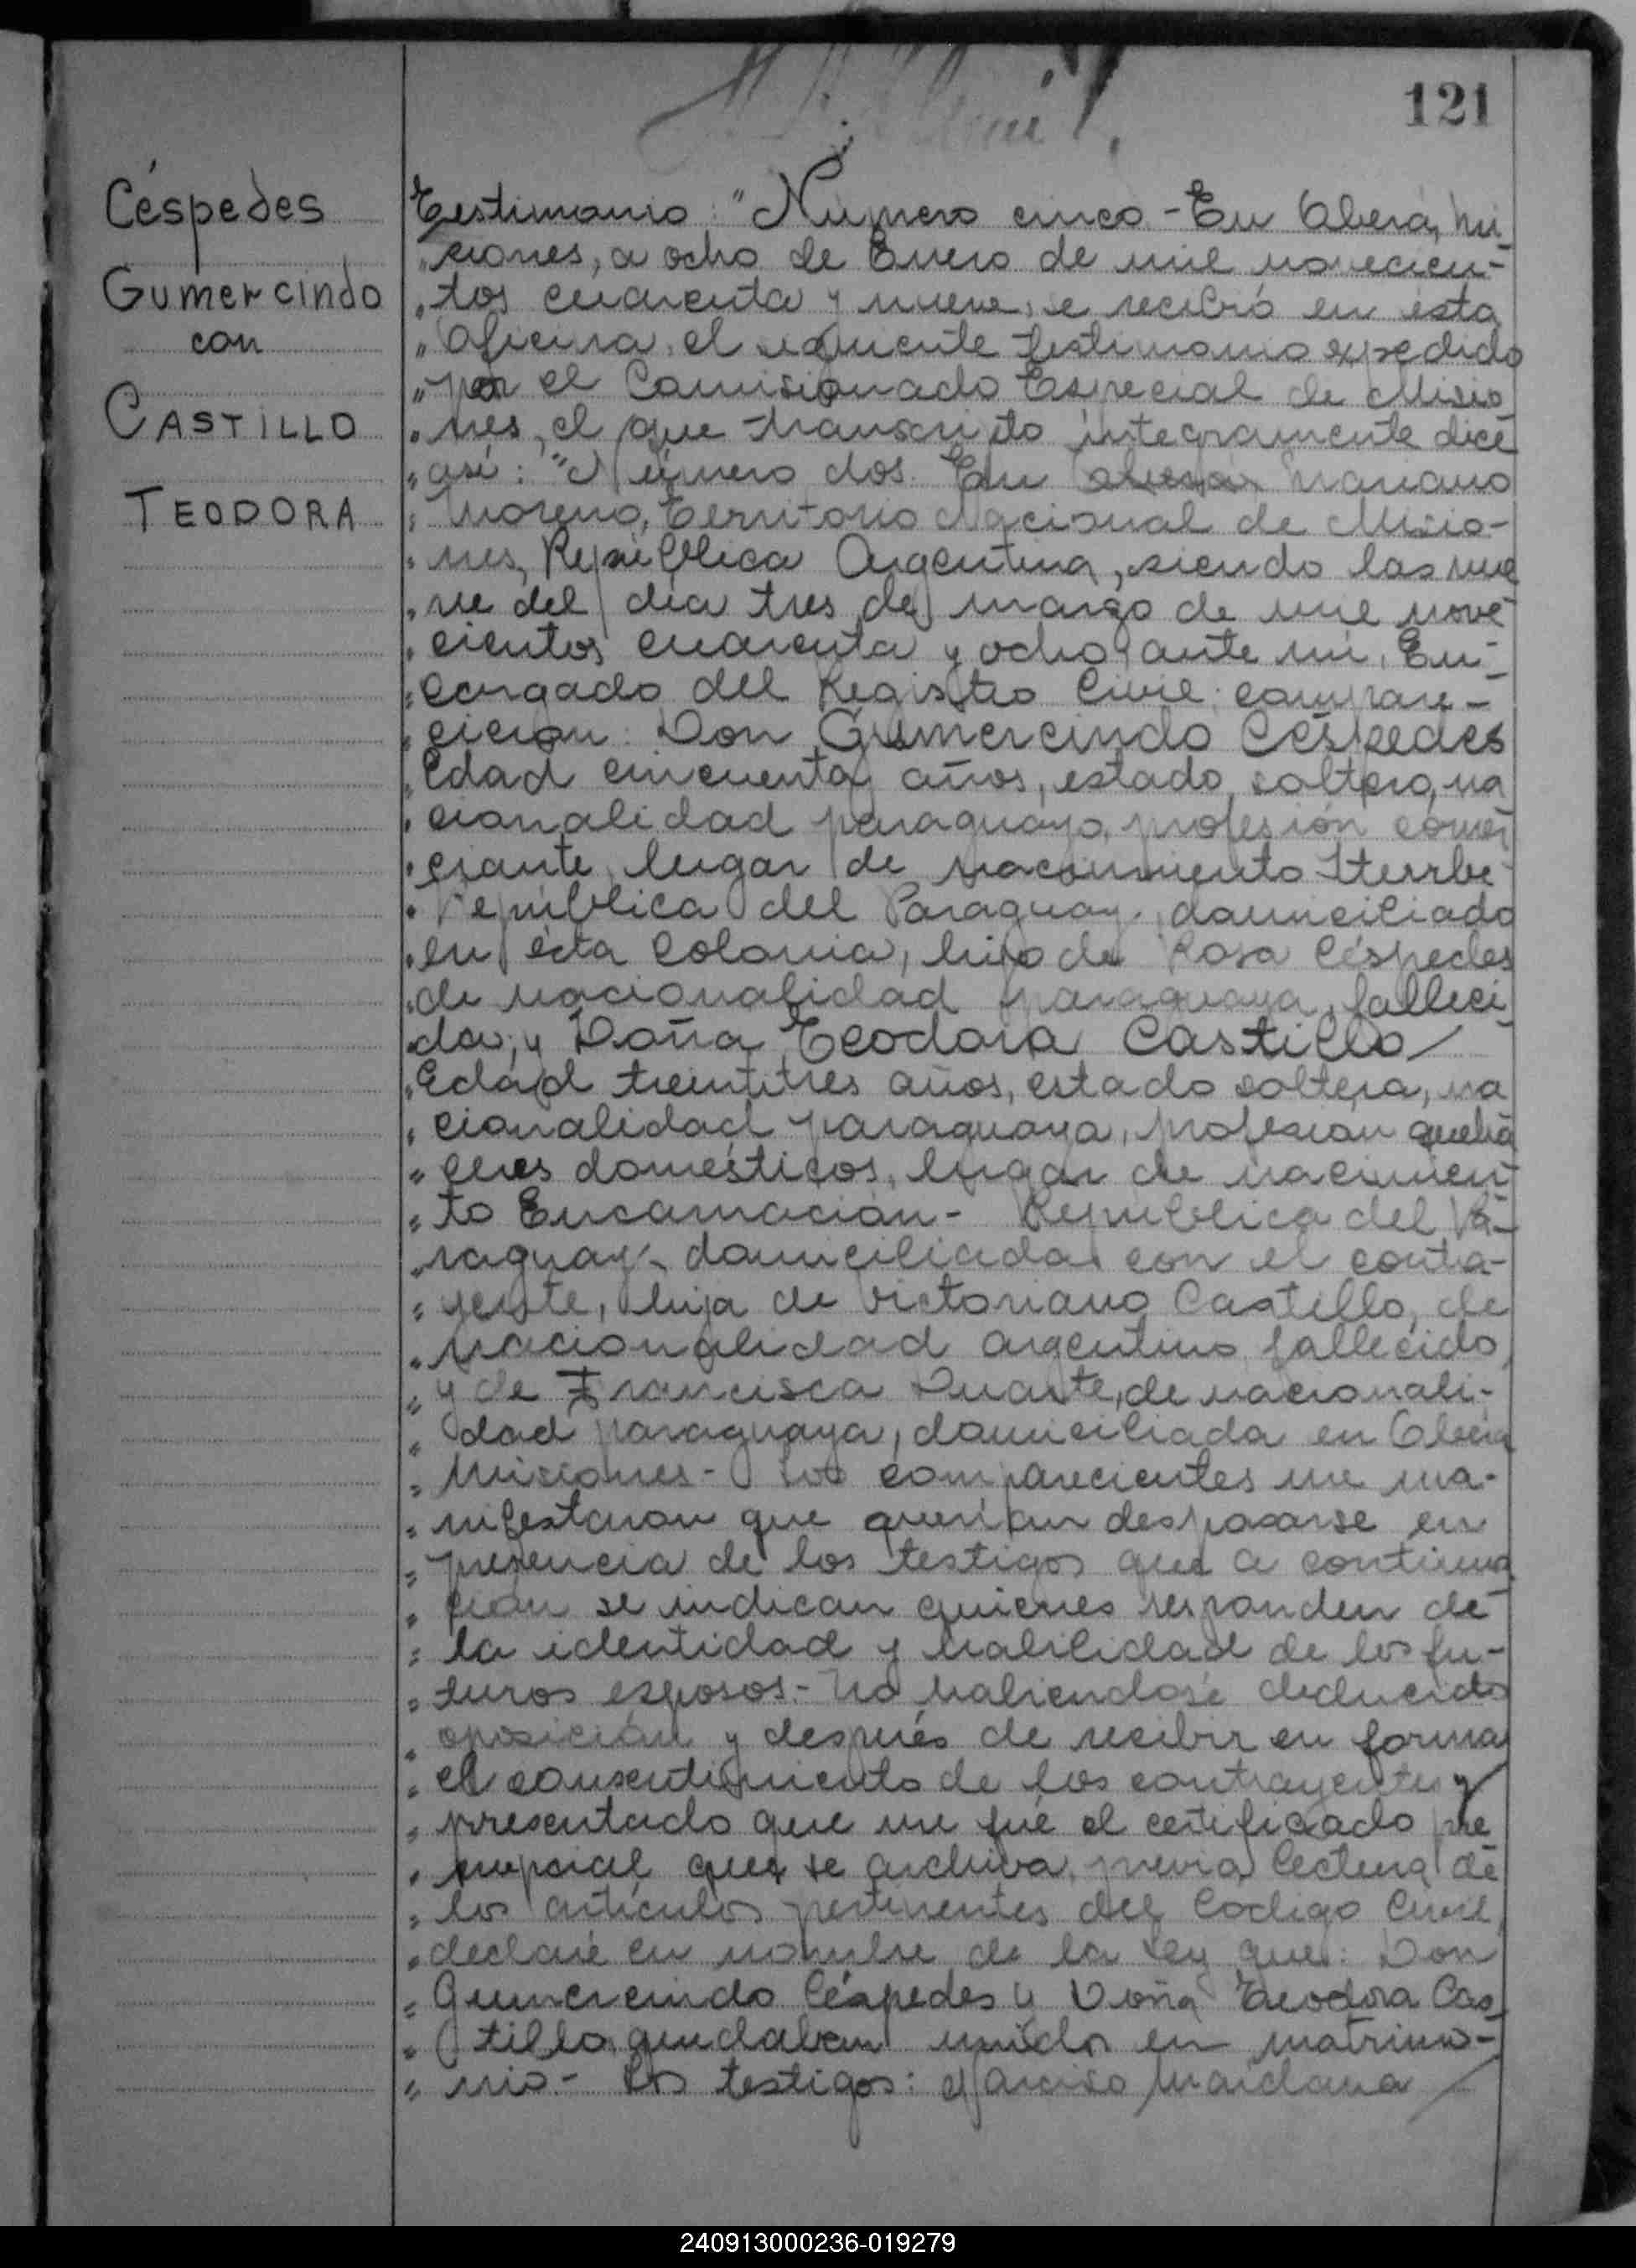 121
Céspedes
Gumercindo
con
CASTILLO
TEODORA
Testimonio: "Número cinco - En Oberá, Mi-
"siones, a ocho de Enero de mil novecien-
"tos cuarenta y nueve, se recibió en ésta
"Oficina, el siguiente testimonio expedido
"por el Comisionado Especial de Misio-
"nes, el que transcripto íntegramente dice
"así: "Número dos. En Mariano
"Moreno, Territorio Nacional de Misio-
"nes, República Argentina, siendo las nue
"ve del día tres de marzo de mil nove-
"cientos cuarenta y ocho, ante mí, En-
"cargado del Registro Civil; compare-
"cieron: Don Gumercindo Céspedes
"Edad cincuenta años, estado soltero, na
"cionalidad paraguayo, profesión comer
"ciante, lugar de nacimiento
"República del Paraguay, domiciliado
"en ésta Colonia, hijo de Rosa Céspedes
"de nacionalidad paraguaya, falleci
"da; y Doña Teodora Castillo
"Edad treintitres años, estado soltera, na
"cionalidad paraguaya, profesión queha
"ceres domésticos, lugar de nacimien
"to Encarnación - República del Pa-
"raguay, domiciliada con el contra-
"yente, hija de Victoriano Castillo, de
"nacionalidad argentino, fallecido,
"y de Francisca Duarte, de nacionali-
"dad paraguaya, domiciliada en Oberá
"Misiones - Los comparecientes me ma-
"nifestaron que querían desposarse en
"presencia de los testigos que a continua
"ción se indican quienes responden de
"la identidad y habilidad de los fu-
"turos esposos - No habiendose deducido
"oposición y después de recibir en forma
"el consentimiento de los contrayentes y
"presentado que me fué el certificado pre
"nupcial que se archiva, previa lectura de
"los artículos pertinentes del Codigo Civil,
"declaré en nombre de la Ley que: Don
"Gumercindo Céspedes y Doña Teodora Cas
"tillo, quedaban unidos en matrimo-
"nio - Los testigos: Narciso Maidana
240913000236-019279